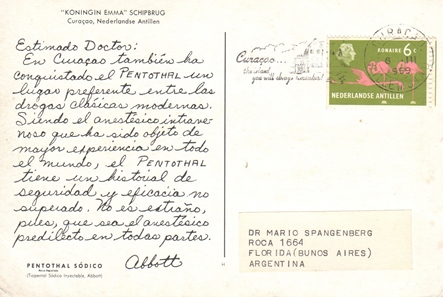 "KONINGIN EMMA" SCHIPBRUG
Curaçao, Nederlandse Antillen
Estimado Doctor:
En Curaçao también ha
conquistado el PENTOTHAL un
lugar preferente entre las
drogas clásicas modernas.
Siendo el anestésico intrave-
noso que ha sido objeto de
mayor experiencia en todo
el mundo, el PENTOTHAL
tiene un historial de
seguridad y eficacia no
superado. No es extraño,
pues, que sea el anestésico
predilecto en todas partes.
Abbott
PENTOTHAL SÓDICO
Marca Registrada
(Tiopental Sódico Inyectable, Abbott)
Curaçao...
the island
you will always remember!
BONAIRE 6 C
NEDERLANDSE ANTILLEN
DR MARIO SPANGENBERG
ROCA 1664
FLORIDA(BUENOS AIRES)
ARGENTINA